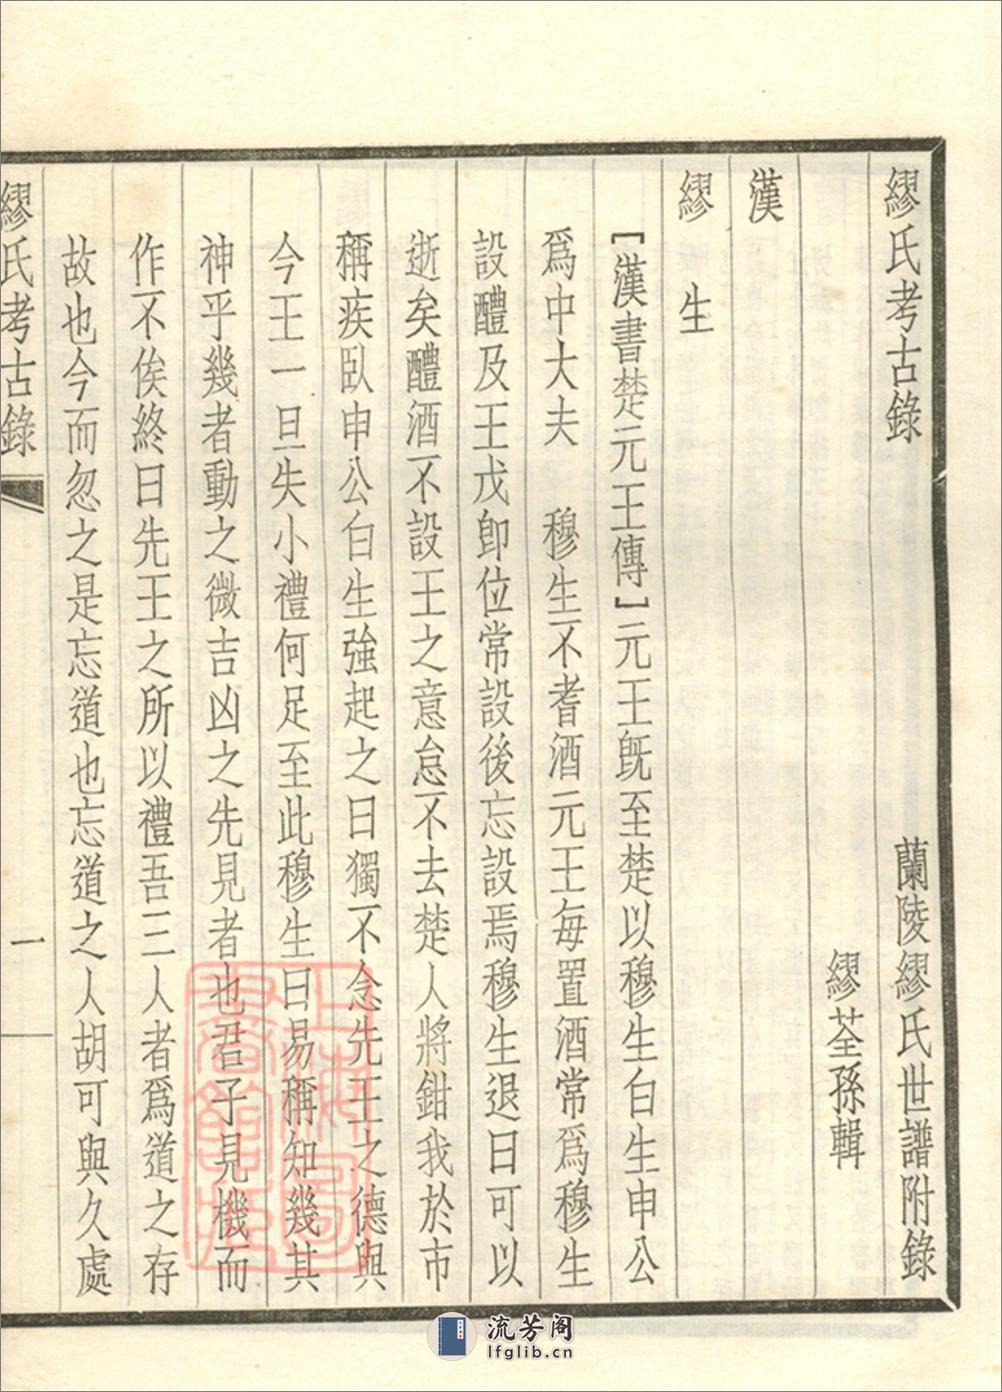 繆氏考古錄
蘭陵繆氏世譜附錄
繆荃孫輯
漢
繆生
[漢書楚元王傳]元王旣至楚以穆生白生申公
爲中大夫 穆生不耆酒元王每置酒常爲穆生
設醴及王戊卽位常設後忘設焉穆生退曰可以
逝矣醴酒不設王之意怠不去楚人將鉗我於市
稱疾臥申公白生強起之曰獨不念先王之德與
今王一旦失小禮何足至此穆生曰易稱知幾其
神乎幾者動之微吉凶之先見者也君子見機而
作不俟終日先王之所以禮吾三人者爲道之存
故也今而忽之是忘道也忘道之人胡可與久處
繆氏考古錄
一
上海圖書館藏
流芳阁
lfglib.cn